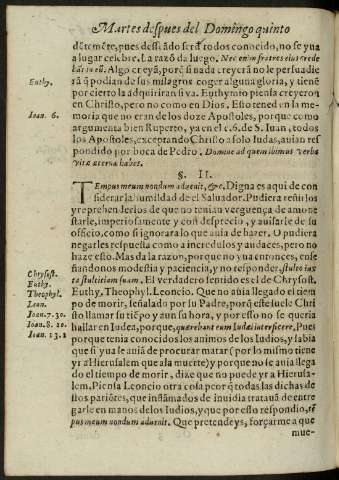 Martes despues del Domingo quinto
dẽtemẽte, pues desseãdo ser d todos conocido, no se yua
a lugar celebre. La razõ da luego. Nec enim fratres eius crede
bãt in eũ. Algo creyã, porq̃ si nada creyerã no le persuadie
rã q̃ podian de sus milagros coger alguna gloria, y tienẽ
Euthy. por cierto la adquiriran si va. Euthymio piensa creyeron
en Christo, pero no como en Dios. Esto tened en la me-
Ioan. 6. moria que no eran de los doze Apostoles, porque como
argumenta bien Ruperto, ya en el c. 6. de S. Iuan, todos
los Apostoles, exceptando Christo a solo Iudas, auian res
pondido por boca de Pedro. Domine ad quem ibimus verba
vitæ æternæ habes.
§. II.
Tempus meum nondum aduenit, &c. Digna es aqui de con
siderar la humildad del Saluador. Pudiera reñirlos
y reprehenderlos de que no tenian verguença de amone
starle, imperiosamente y con desprecio, y auisarle de su
officio, como si ignorara lo que auia de hazer. O pudiera
negarles respuesta como a incredulos y audaces, pero no
haze esto. Mas da la razon, porque no yua entonces, ense
ñandonos modestia y paciencia, y no responder, stulto iux
Chrysost. ta stultitiam suam. El verdadero sentido es el de Chrysost.
Euthy.
Theophyl. Euthy, Theophyl. Leoncio. Que no auia llegado el tiem
Leon. po de morir, señalado por su Padre, porq̃ este suele Chri
Ioan. 7. 30. sto llamar su tiẽpo y aun su hora, y por esso no se queria
Ioan. 8. 20. hallar en Iudea, porque, quærebant eum Iudæi interficere. Pues
Ioan. 13. 1 porque tenia conocidos los animos de los Iudios, y sabia
que si yua le auiã de procurar matar (por lo mismo tiene
yr a Hierusalem que a la muerte) y porque no le auia llega
do el tiempo de morir, dize que no puede yr a Hierusa-
lem. Piensa Leoncio otra cosa peor q̃ todas las dichas de
stos pariẽtes, que inflãmados de inuidia tratauã de entre
garle en manos de los Iudios, y que por esto respondio, tẽ
pus meum nondum aduenit. Que pretendeys, forçarme a que
mue-